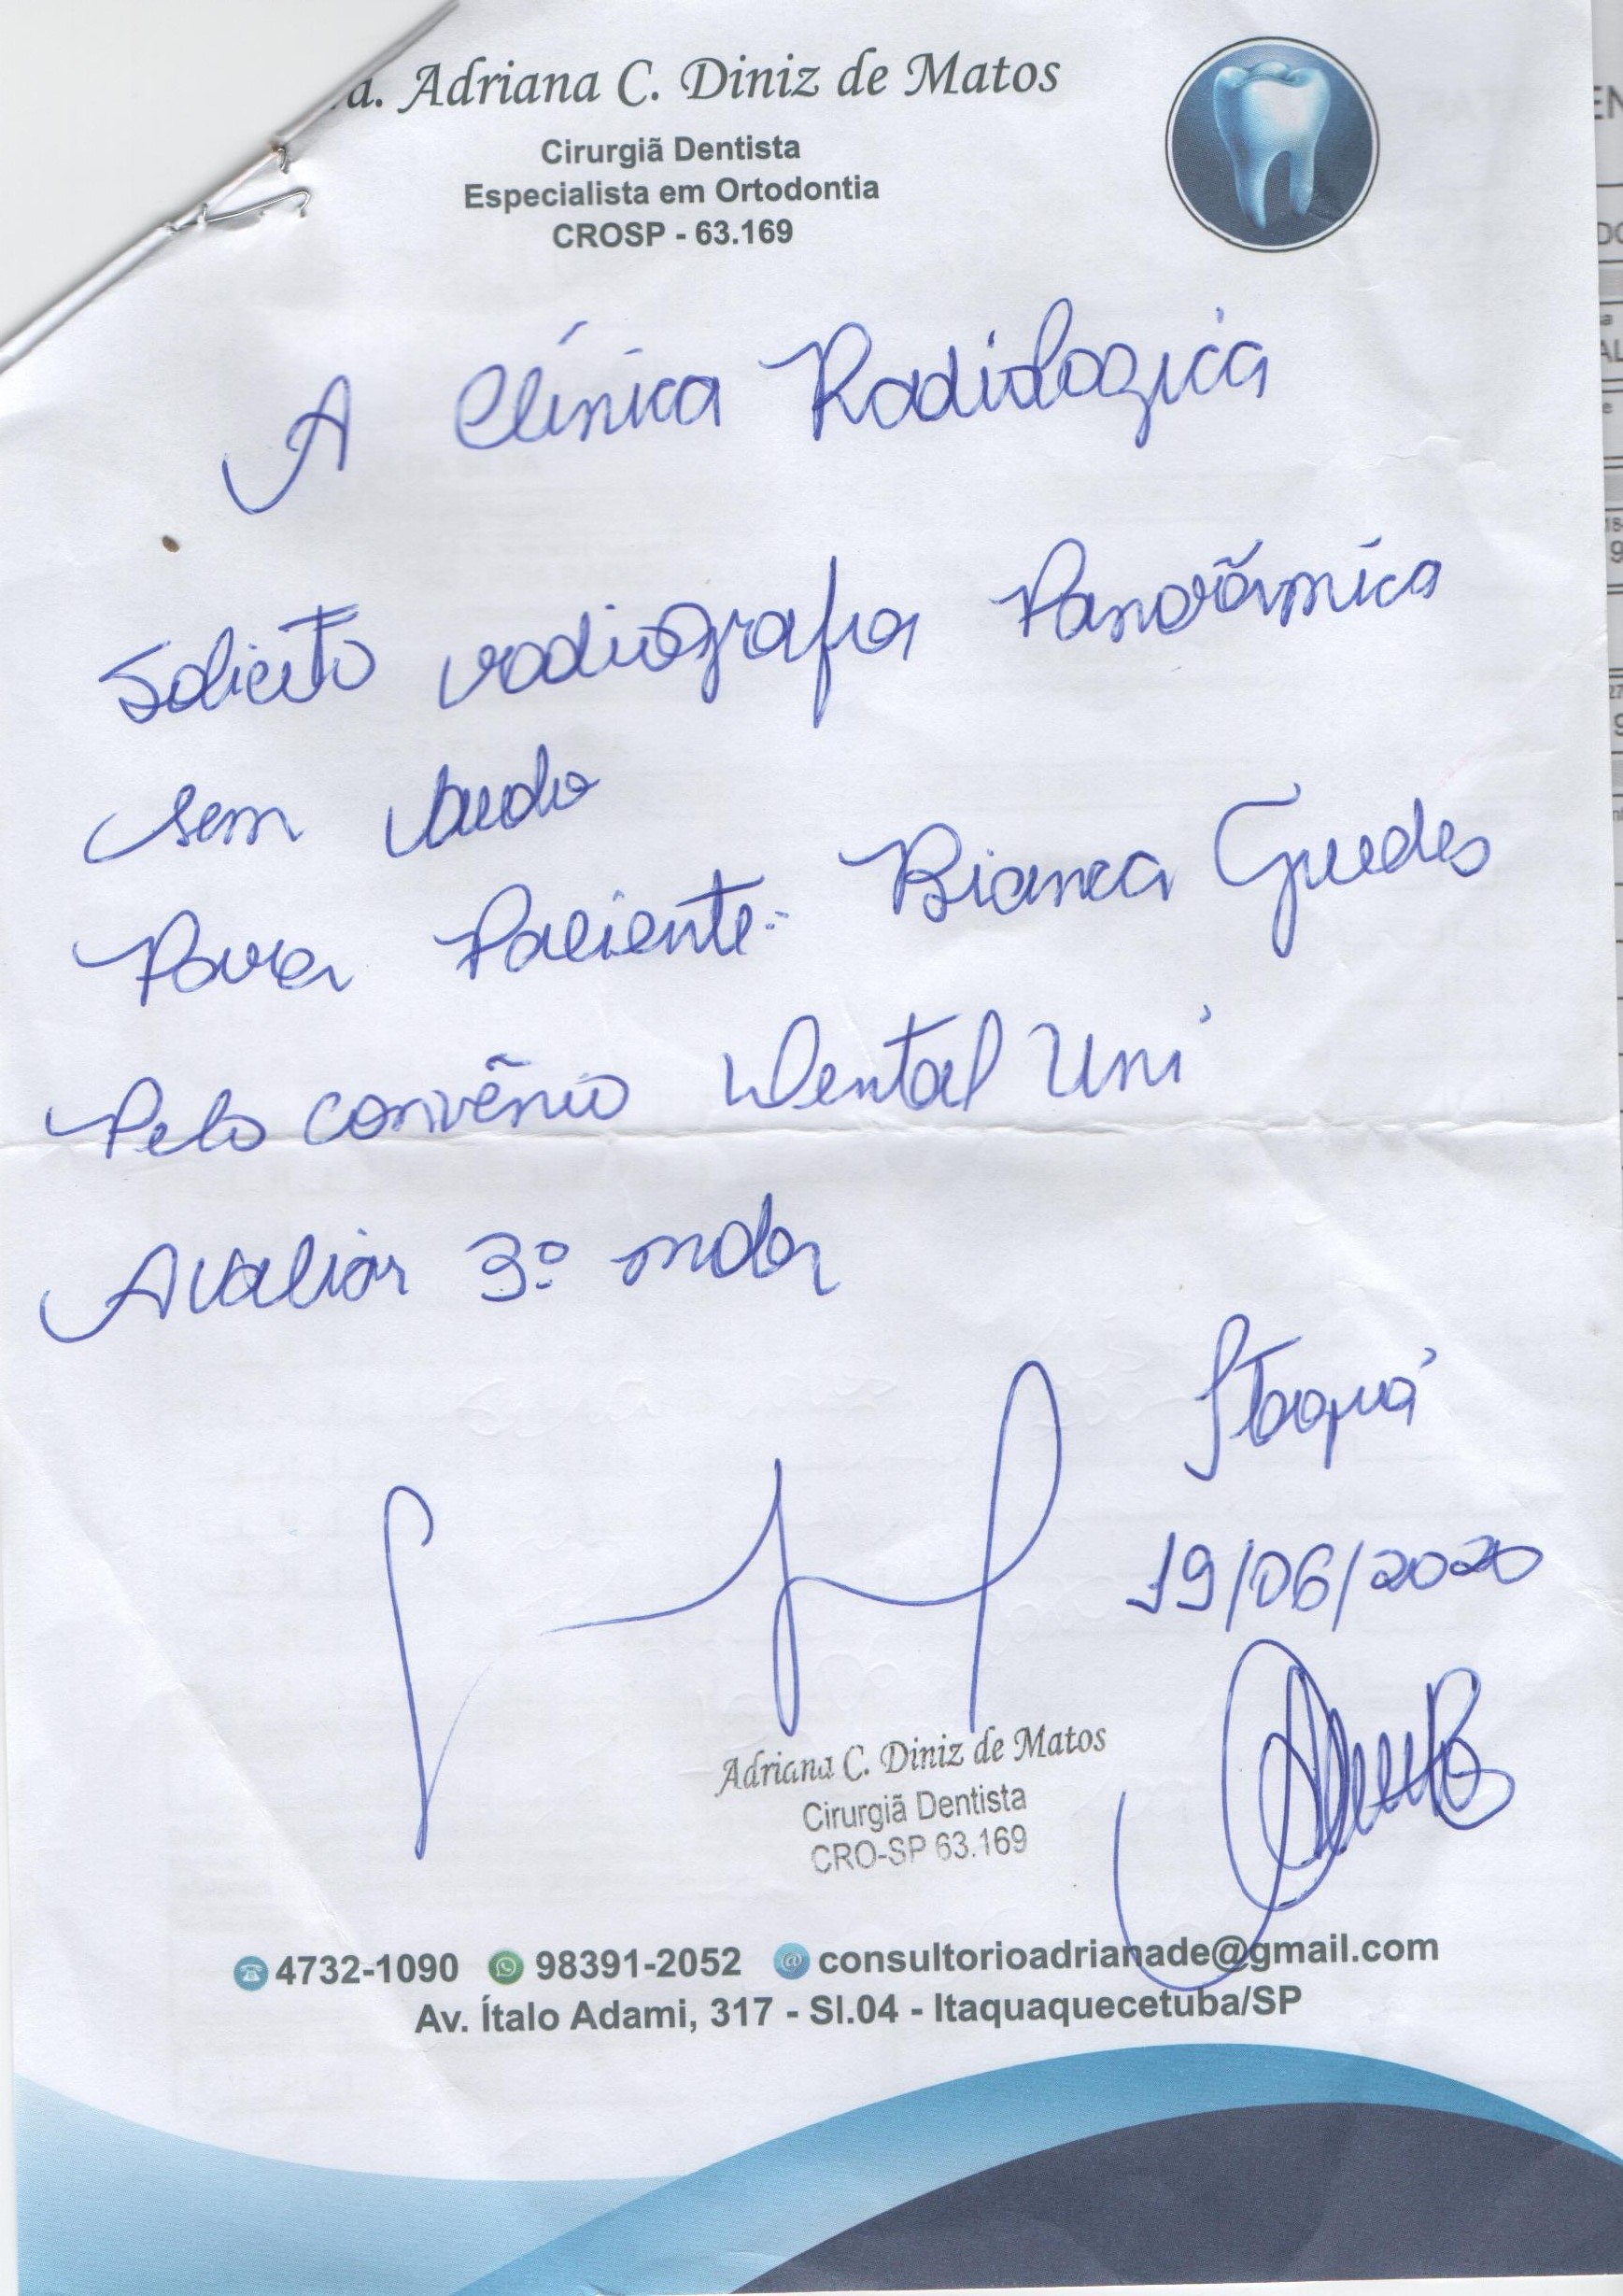 a. Adriana C. Diniz de Matos
Cirurgiã Dentista
Especialista em Ortodontia
CROSP - 63.169
A Clínica Radiologica
Solicito radiografia Panorâmica
sem laudo
Para Paciente: Bianca Guedes
Pelo convênio Dental Uni
Avaliar 3º molar
Itaquá
19/06/2020
Adriana C. Diniz de Matos
Cirurgiã Dentista
CRO-SP 63.169
4732-1090 98391-2052 @ consultorioadrianade@gmail.com
Av. Ítalo Adami, 317 - Sl.04 - Itaquaquecetuba/SP